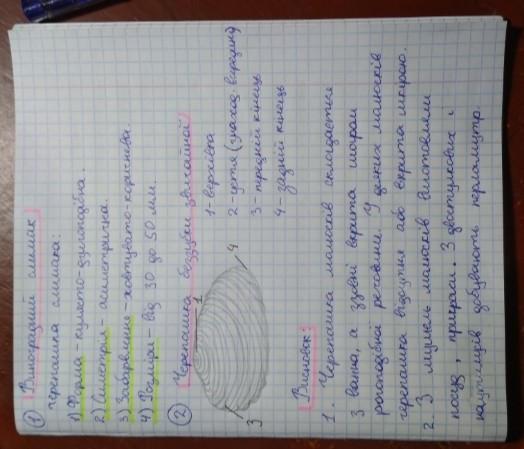 ① Виноградний слимак
черепашка слимака:
1) Форма - кулясто-дзигоподібна.
2) Симетрія - асиметрична.
3) Забарвлення - жовтувато-коричнева.
4) Розміри - від 30 до 50 мм.
② Черепашка беззубки звичайної
1 - верхівка
2 - устя (знаход. вирощ
3 - передній кінець
4 - задній кінець
1
3
4
Висновок:
1. Черепашка молюсків складається
з вапна, а ззовні вкрита шаром
рогоподібної речовини. У деяких молюсків
черепашка відсутня або вкрита шкірою.
2. З мушель молюсків виготовляли
посуд, прикраси. З двостулкових і
наутилусів добувають перламутр.